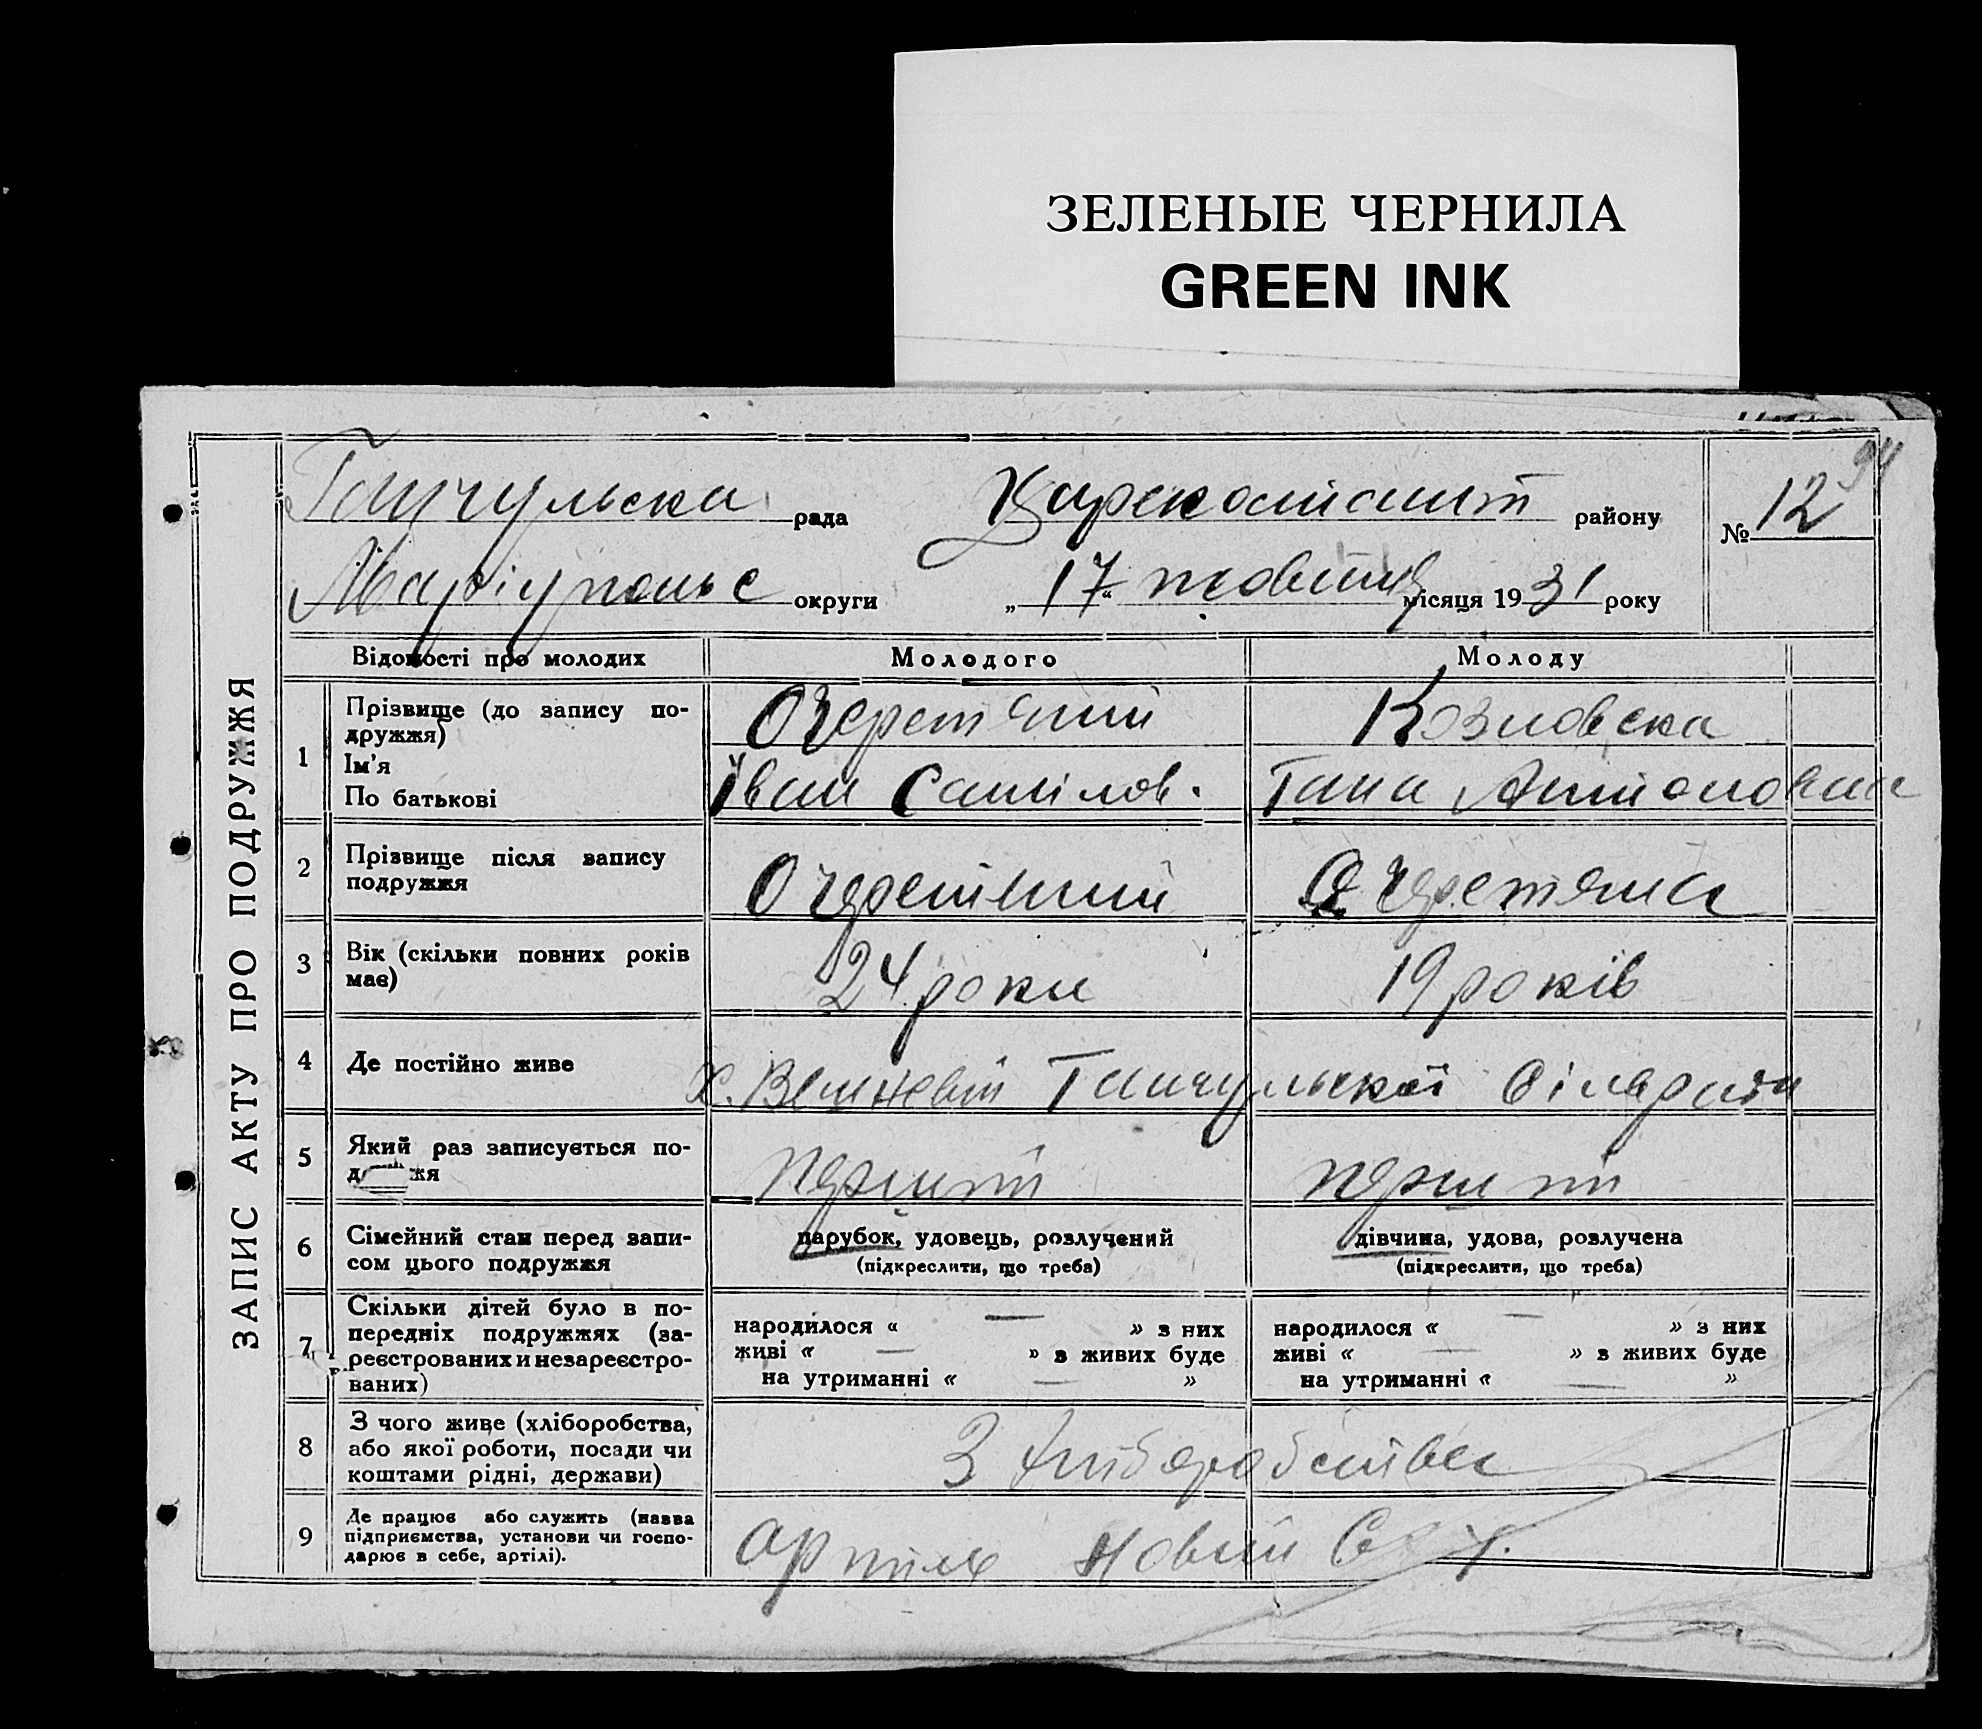 ЗЕЛЕНЫЕ ЧЕРНИЛА
GREEN INK
94
рада району № 12
Маріупольс округи „17“ жовтня місяця 1931 року
ЗАПИС АКТУ ПРО ПОДРУЖЖЯ
Відомості про молодих Молодого Молоду
1 Прізвище (до запису по-
дружжя)
Ім'я
По батькові
Очеретяний Козловска
Іван Ганна Антоновна
2 Прізвище після запису
подружжя
Очеретяний Очеретяна
3 Вік (скільки повних років
має)
24 роки 19 років
4 Де постійно живе х. Сільради
5 Який раз записується по-
жя
перший перший
6 Сімейний стан перед запи-
сом цього подружжя
парубок, удовець, розлучений дівчина, удова, розлучена
(підкреслити, що треба) (підкреслити, що треба)
7 Скільки дітей було в по-
передніх подружжях (за-
реєстрованих и незареєстро-
ваних)
народилося « — » з них народилося « — » з них
живі « — » з живих буде живі « — » з живих буде
на утриманні « — » на утриманні « — »
8 З чого живе (хліборобства,
або якої роботи, посади чи
коштами рідні, держави)
З хліборобства
9 Де працює або служить (назва
підприємства, установи чи госпо-
дарює в себе, артілі).
артиль Новий Світ.